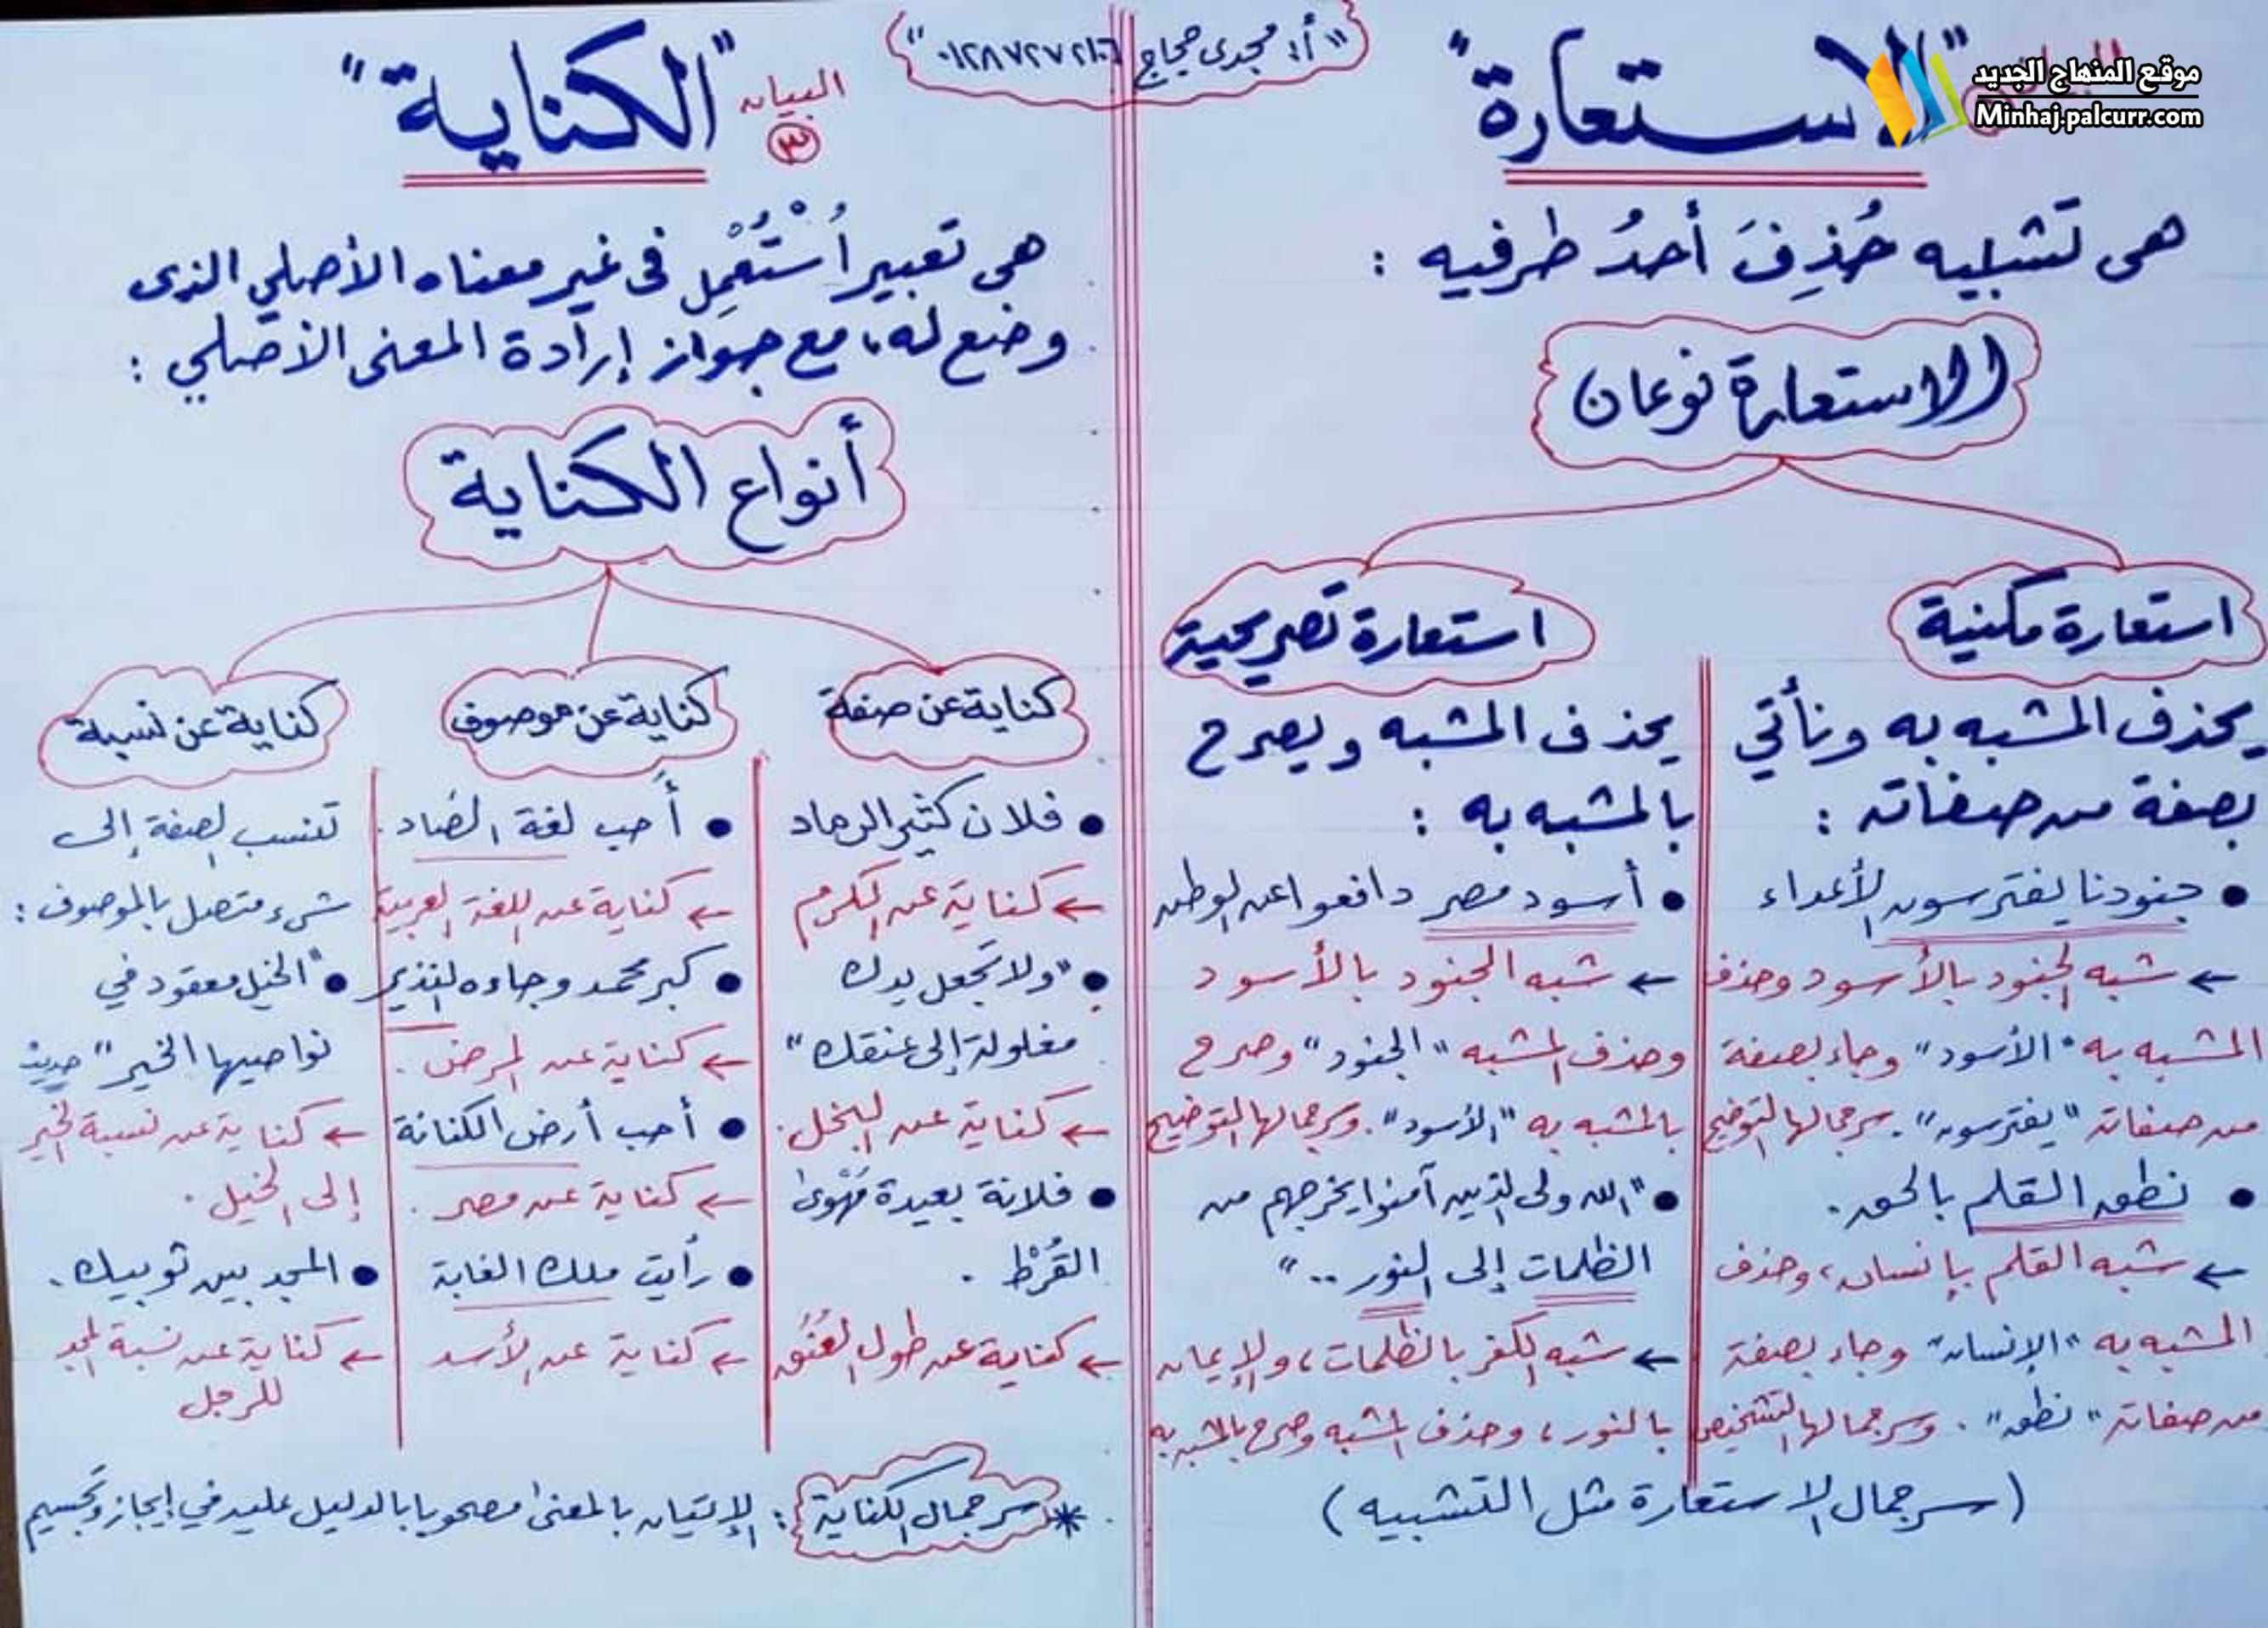 موقع المنهاج الجديد
Minhaj.palcurr.com
"أ: مجدى حجاج ٠١٢٨٧٢٧٢١٠٦"
"الاستعارة"
هى تشبيه حُذِفَ أحدُ طرفيه :
الاستعارة نوعان
استعارة مكنية
يحذف المشبه به ونأتي
بصفة من صفاته :
• جنودنا يفترسون الأعداء
← شبه الجنود بالأسود وحذف
المشبه به "الأسود" وجاء بصفة
من صفاته "يفترسون". سر جمالها التوضيح
• نطق القلم بالحق .
← شبه القلم بإنسان، وحذف
المشبه به "الإنسان" وجاء بصفة
من صفاته "نطق" . وسر جمالها التشخيص
استعارة تصريحية
يحذف المشبه ويصرح
بالمشبه به :
• أسود مصر دافعوا عن الوطن
← شبه الجنود بالأسود
وحذف المشبه "الجنود" وصرح
بالمشبه به "الأسود". وسر جمالها التوضيح
• "الله ولى الذين آمنوا يخرجهم من
الظلمات إلى النور .."
← شبه الكفر بالظلمات، والإيمان
بالنور، وحذف المشبه وصرح بالمشبه به
(سر جمال الاستعارة مثل التشبيه)
البيان
٣
"الكناية"
هى تعبير اُسْتُعْمِل فى غير معناه الأصلي الذى
وضع له، مع جواز إرادة المعنى الأصلي :
أنواع الكناية
كناية عن صفة
• فلان كثير الرماد
← كناية عن الكرم
• "ولا تجعل يدك
مغلولة إلى عنقك"
← كناية عن البخل.
• فلانة بعيدة مَهْوى
القُرْط .
← كناية عن طول العُنُق
كناية عن موصوف
• أُحب لغة الضاد .
← كناية عن اللغة العربية
• كبر محمد وجاءه النذير
← كناية عن المرض .
• أحب أرض الكنانة
← كناية عن مصر .
• رأيت ملك الغابة
← كناية عن الأسد
كناية عن نسبة
تنسب الصفة إلى
شىء متصل بالموصوف :
• "الخيل معقود في
نواصيها الخير" حديث
← كناية عن نسبة الخير
إلى الخيل .
• المجد بين ثوبيك .
← كناية عن نسبة المجد
للرجل
* سر جمال الكناية : الإتيان بالمعنى مصحوبا بالدليل عليه في إيجاز وتجسيم